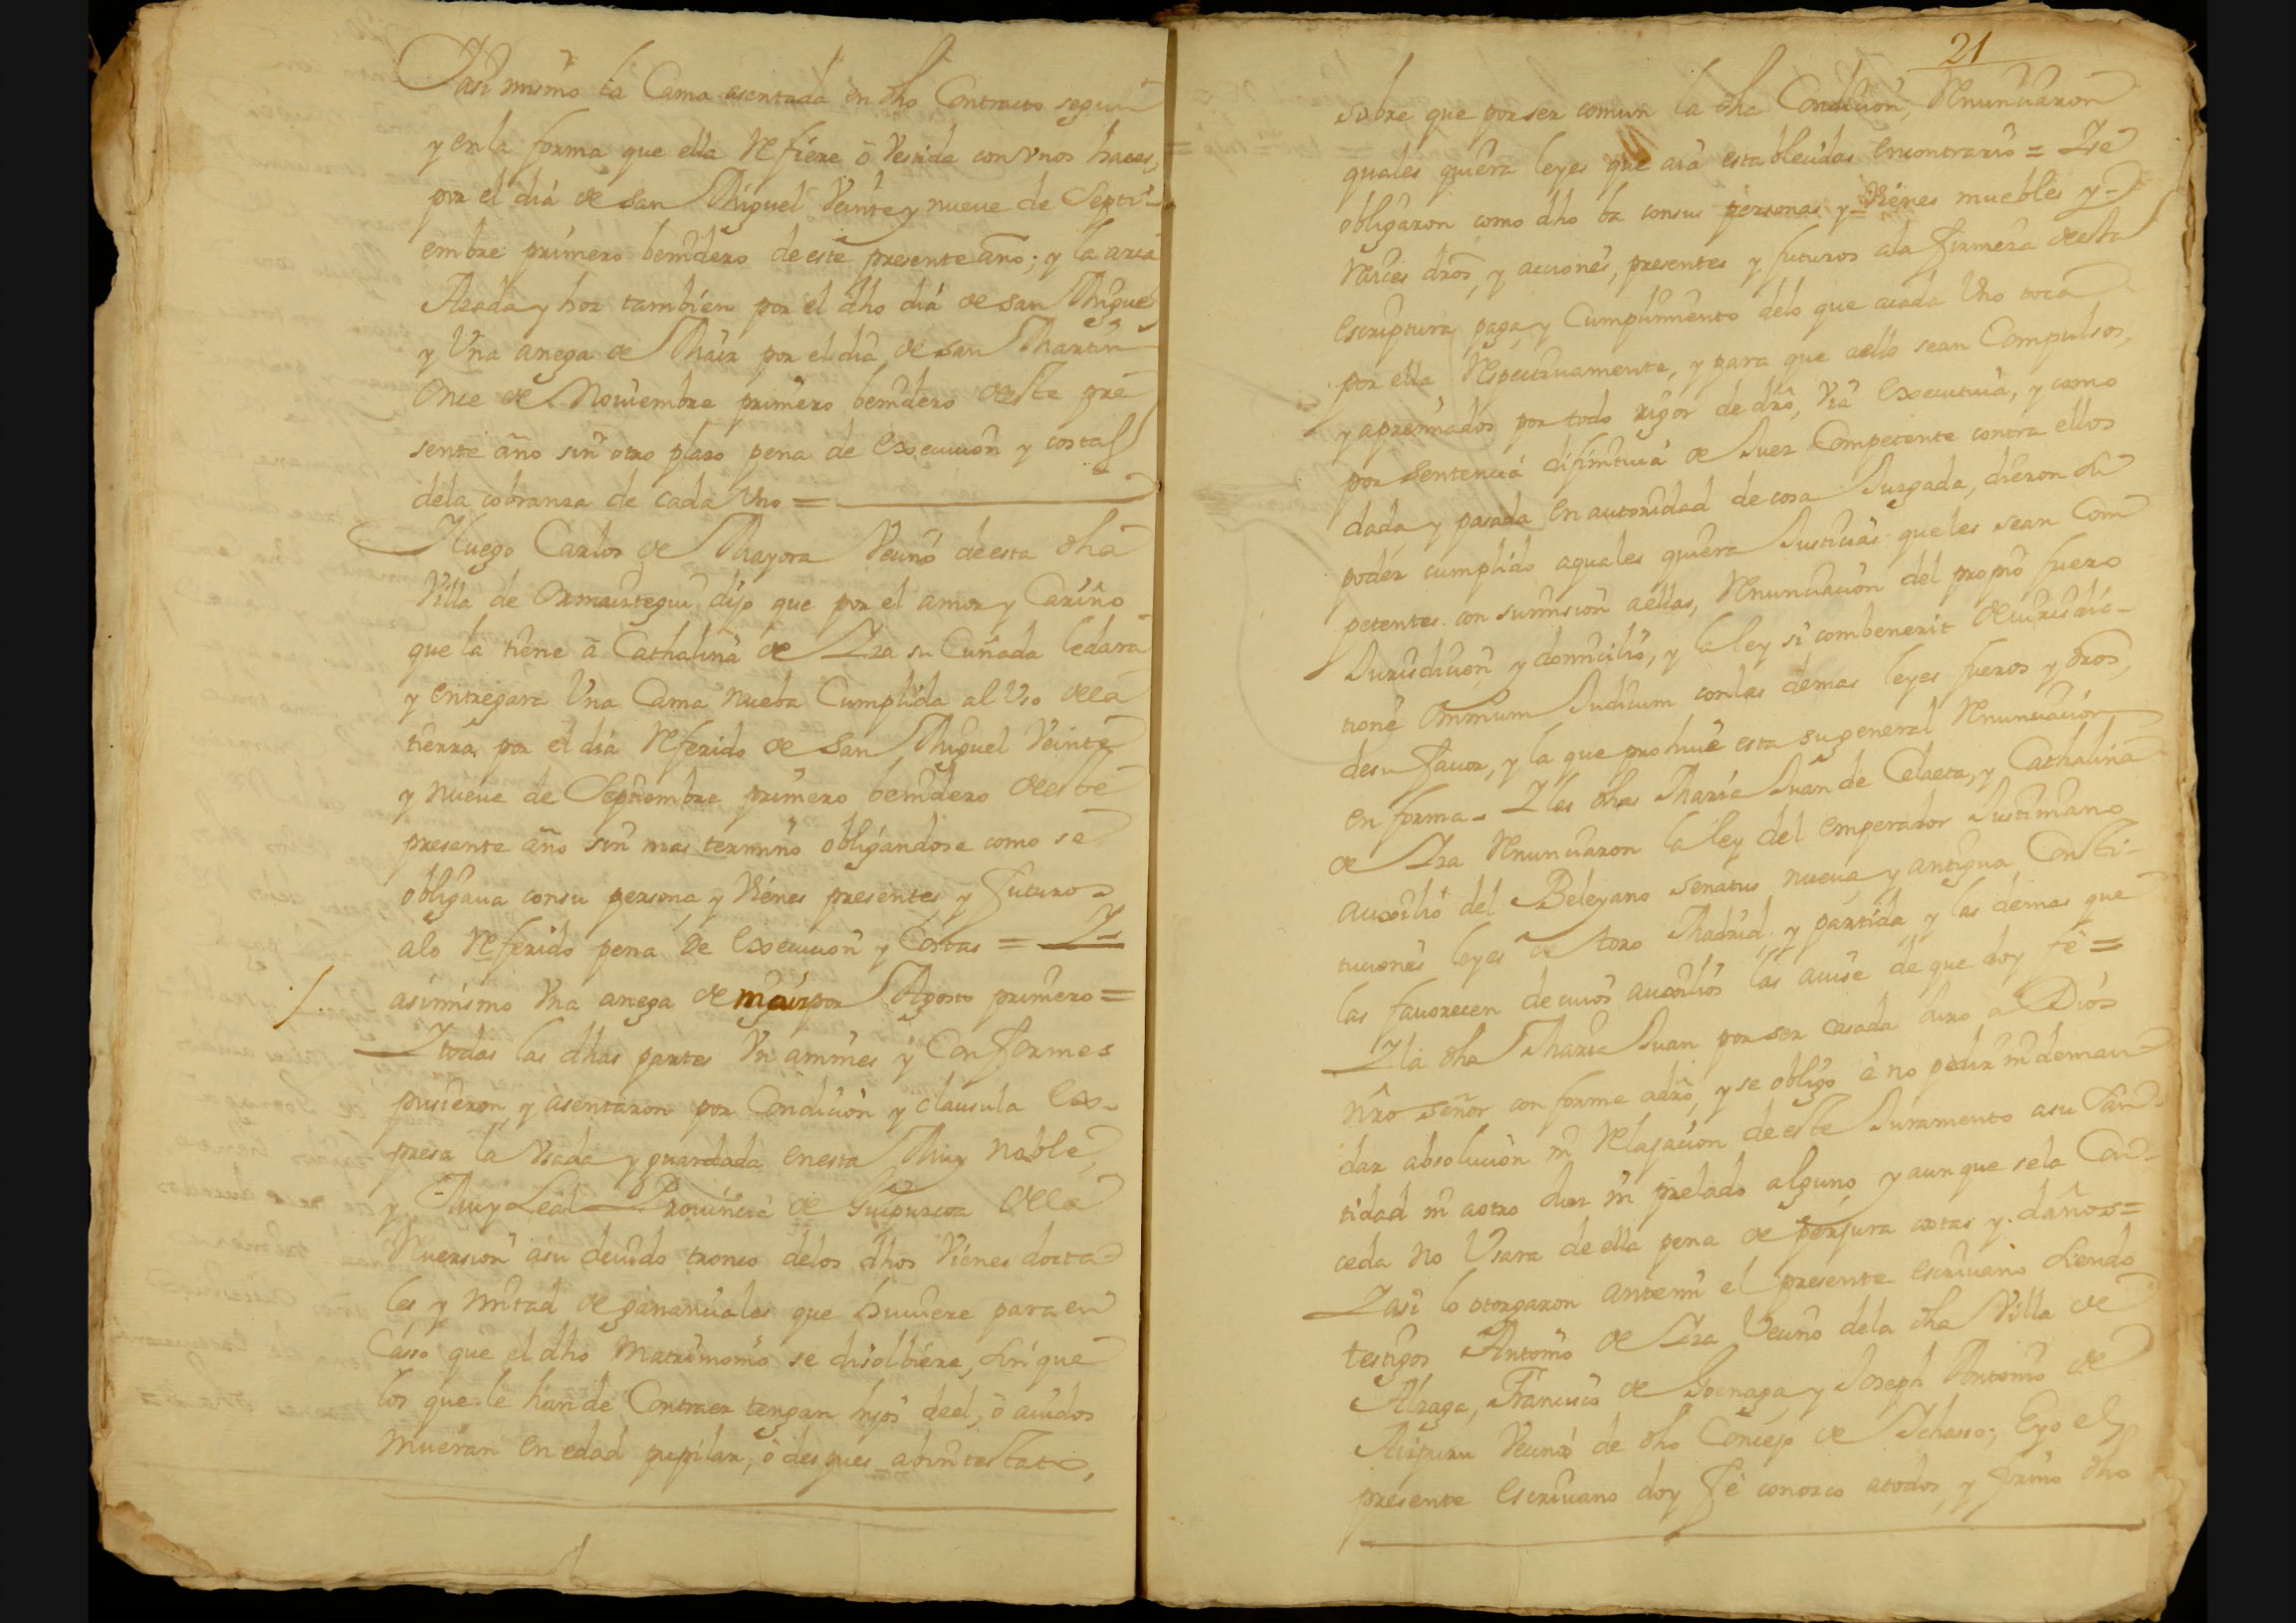 Yasi mismo la Cama asentada en dho Contracto segun
y en la forma que ella Refiere ô Vestida con vnos haces,
por el dia de San Miguel Veinte y nueue de Septi-
embre primero benidero de este presente año; y la arca
Azada y hoz tambien por el dho dia de San Miguel
y Vna anega de Maiz por el dia de san Martin
Once de Nouiembre primero benidero deste pre
sente año sin otro plazo pena de execucion y costas
dela cobranza de cada Vno =
Y luego Carlos de Mayora Vecino de esta dha
Villa de Ormaiztegui dijo que por el amor y Cariño
que la tiene â Cathalina de Iza su Cuñada le dara
y entregara Vna Cama nueba Cumplida al Vso de la
tierra por el dia Referido de San Miguel Veinte
y nueue de Septiembre primero benidero deeste
presente año sin mas termino obligandose como se
obligaua con su persona y Vienes presentes y futuros
alo Referido pena de execucion y Costas = Y
asimismo Vna anega de maiz por Agosto primero =
Y todas las dhas partes Vnanimes y Conformes
pusieron y asentaron por Condicion y clausula Ex-
presa la Vsada y guardada en esta Muy noble,
y Muy Leal Prouincia de Guipuzcoa de la
Reuersion asu deuido tronco delos dhos Vienes dota
les y mitad de gananciales que huuiere para en
Casso que el dho Matrimonio se disolbiere, sin que
los que le han de Contraer tengan hijos de el, ô auidos
mueran en edad pupilar, ô despues abintestato,
21
sobre que por ser comun la dha Condicion, Renunciaron
quales quiera leyes que aia establecidas en contrario = Y se
obligaron como dho ba con sus personas y Vienes muebles y
Raices dros, y acciones, presentes y futuros ala firmeza desta
Escriptura paga y Cumplimiento delo que acada Vno toca
por ella Respectiuamente, y para que aello sean Compulsos,
y apremiados por todo rigor de dro, Via executiua, y como
por sentencia difinitiua de Juez Competente contra ellos
dada y pasada en autoridad de cosa Juzgada, dieron su
poder cumplido aquales quiera Justicias que les sean Com
petentes con sumision aellas, Renunciacion del propio fuero
Jurisdicion y domicilio, y la ley si combenerit de iurisdic-
tione Omnium Judicum con las demas leyes fueros y dros,
de su fauor, y la que prohiue esta su general Renunciacion
en forma - Y las dhas Maria Juan de Celaeta, y Cathalina
de Iza Renunciaron la ley del emperador Justiniano
auxilio del Beleyano Senatus nueua y antigua Consti-
tuciones leyes de toro Madrid y partida y las demas que
las fauorecen de cuios auxilios las auise de que doy fe =
Y la dha Maria Juan por ser casada Juro a Dios
nro señor conforme adro, y se obligo ê no pedir ni deman
dar absolucion ni Relajacion de este Juramento asu San-
tidad ni aotro Juez ni prelado alguno y aunque se la Con-
ceda no Vsara de ella pena de perjura costas y daños =
Y asi lo otorgaron antemi el presente escriuano siendo
testigos Antonio de Iza Vecino dela dha Villa de
Alzaga, Francisco de Goenaga y Joseph Antonio de
Aizpuru Vecinos de dho Concejo de Ichasso; Eyo el
presente Escriuano doy fe conozco atodos y firmo dho